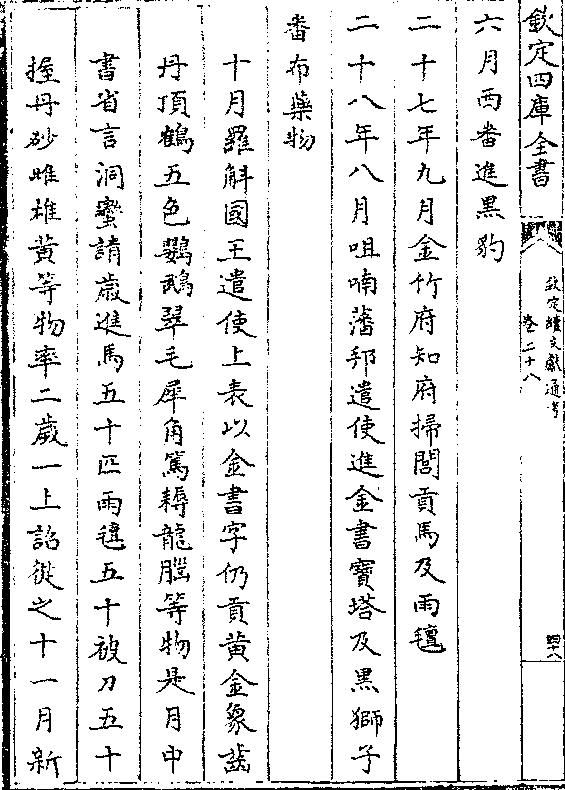 欽定四庫全書
欽定續文獻通考
卷二十八
四十八
六月西番進黑豹
二十七年九月金竹府知府掃閭貢馬及雨氊
二十八年八月咀喃藩邦遣使進金書寶塔及黑獅子
番布藥物
十月羅斛國王遣使上表以金書字仍貢黃金象齒
丹頂鶴五色鸚鵡翠毛犀角篤耨龍腦等物是月中
書省言洞蠻請歲進馬五十匹雨氊五十被刀五十
握丹砂雌雄黃等物率二歲一上詔從之十一月新